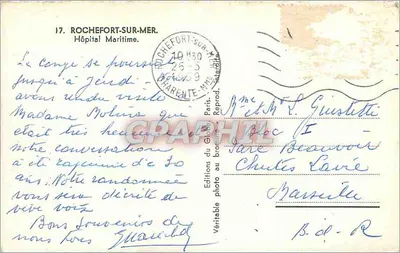 17. ROCHEFORT-SUR-MER.
Hôpital Maritime.
Le congé se poursuit
jusqu'à jeudi -
avons rendu visite
Madame que
était très heureuse
notre conversation
a été rajeunie de 30
ans. Notre randonnée
vous sera décrite de
vive voix
Bons Souvenirs de
nous tous
ROCHEFORT-SUR-MER
25-5
CHARENTE-MME
CARAPHIL
Editions du Paris.
Véritable photo au Reprod.
Mme et Mr L. Guistette
Bloc I
Parc Beauvoir
Chutes Lavie
Marseille
B-d-R